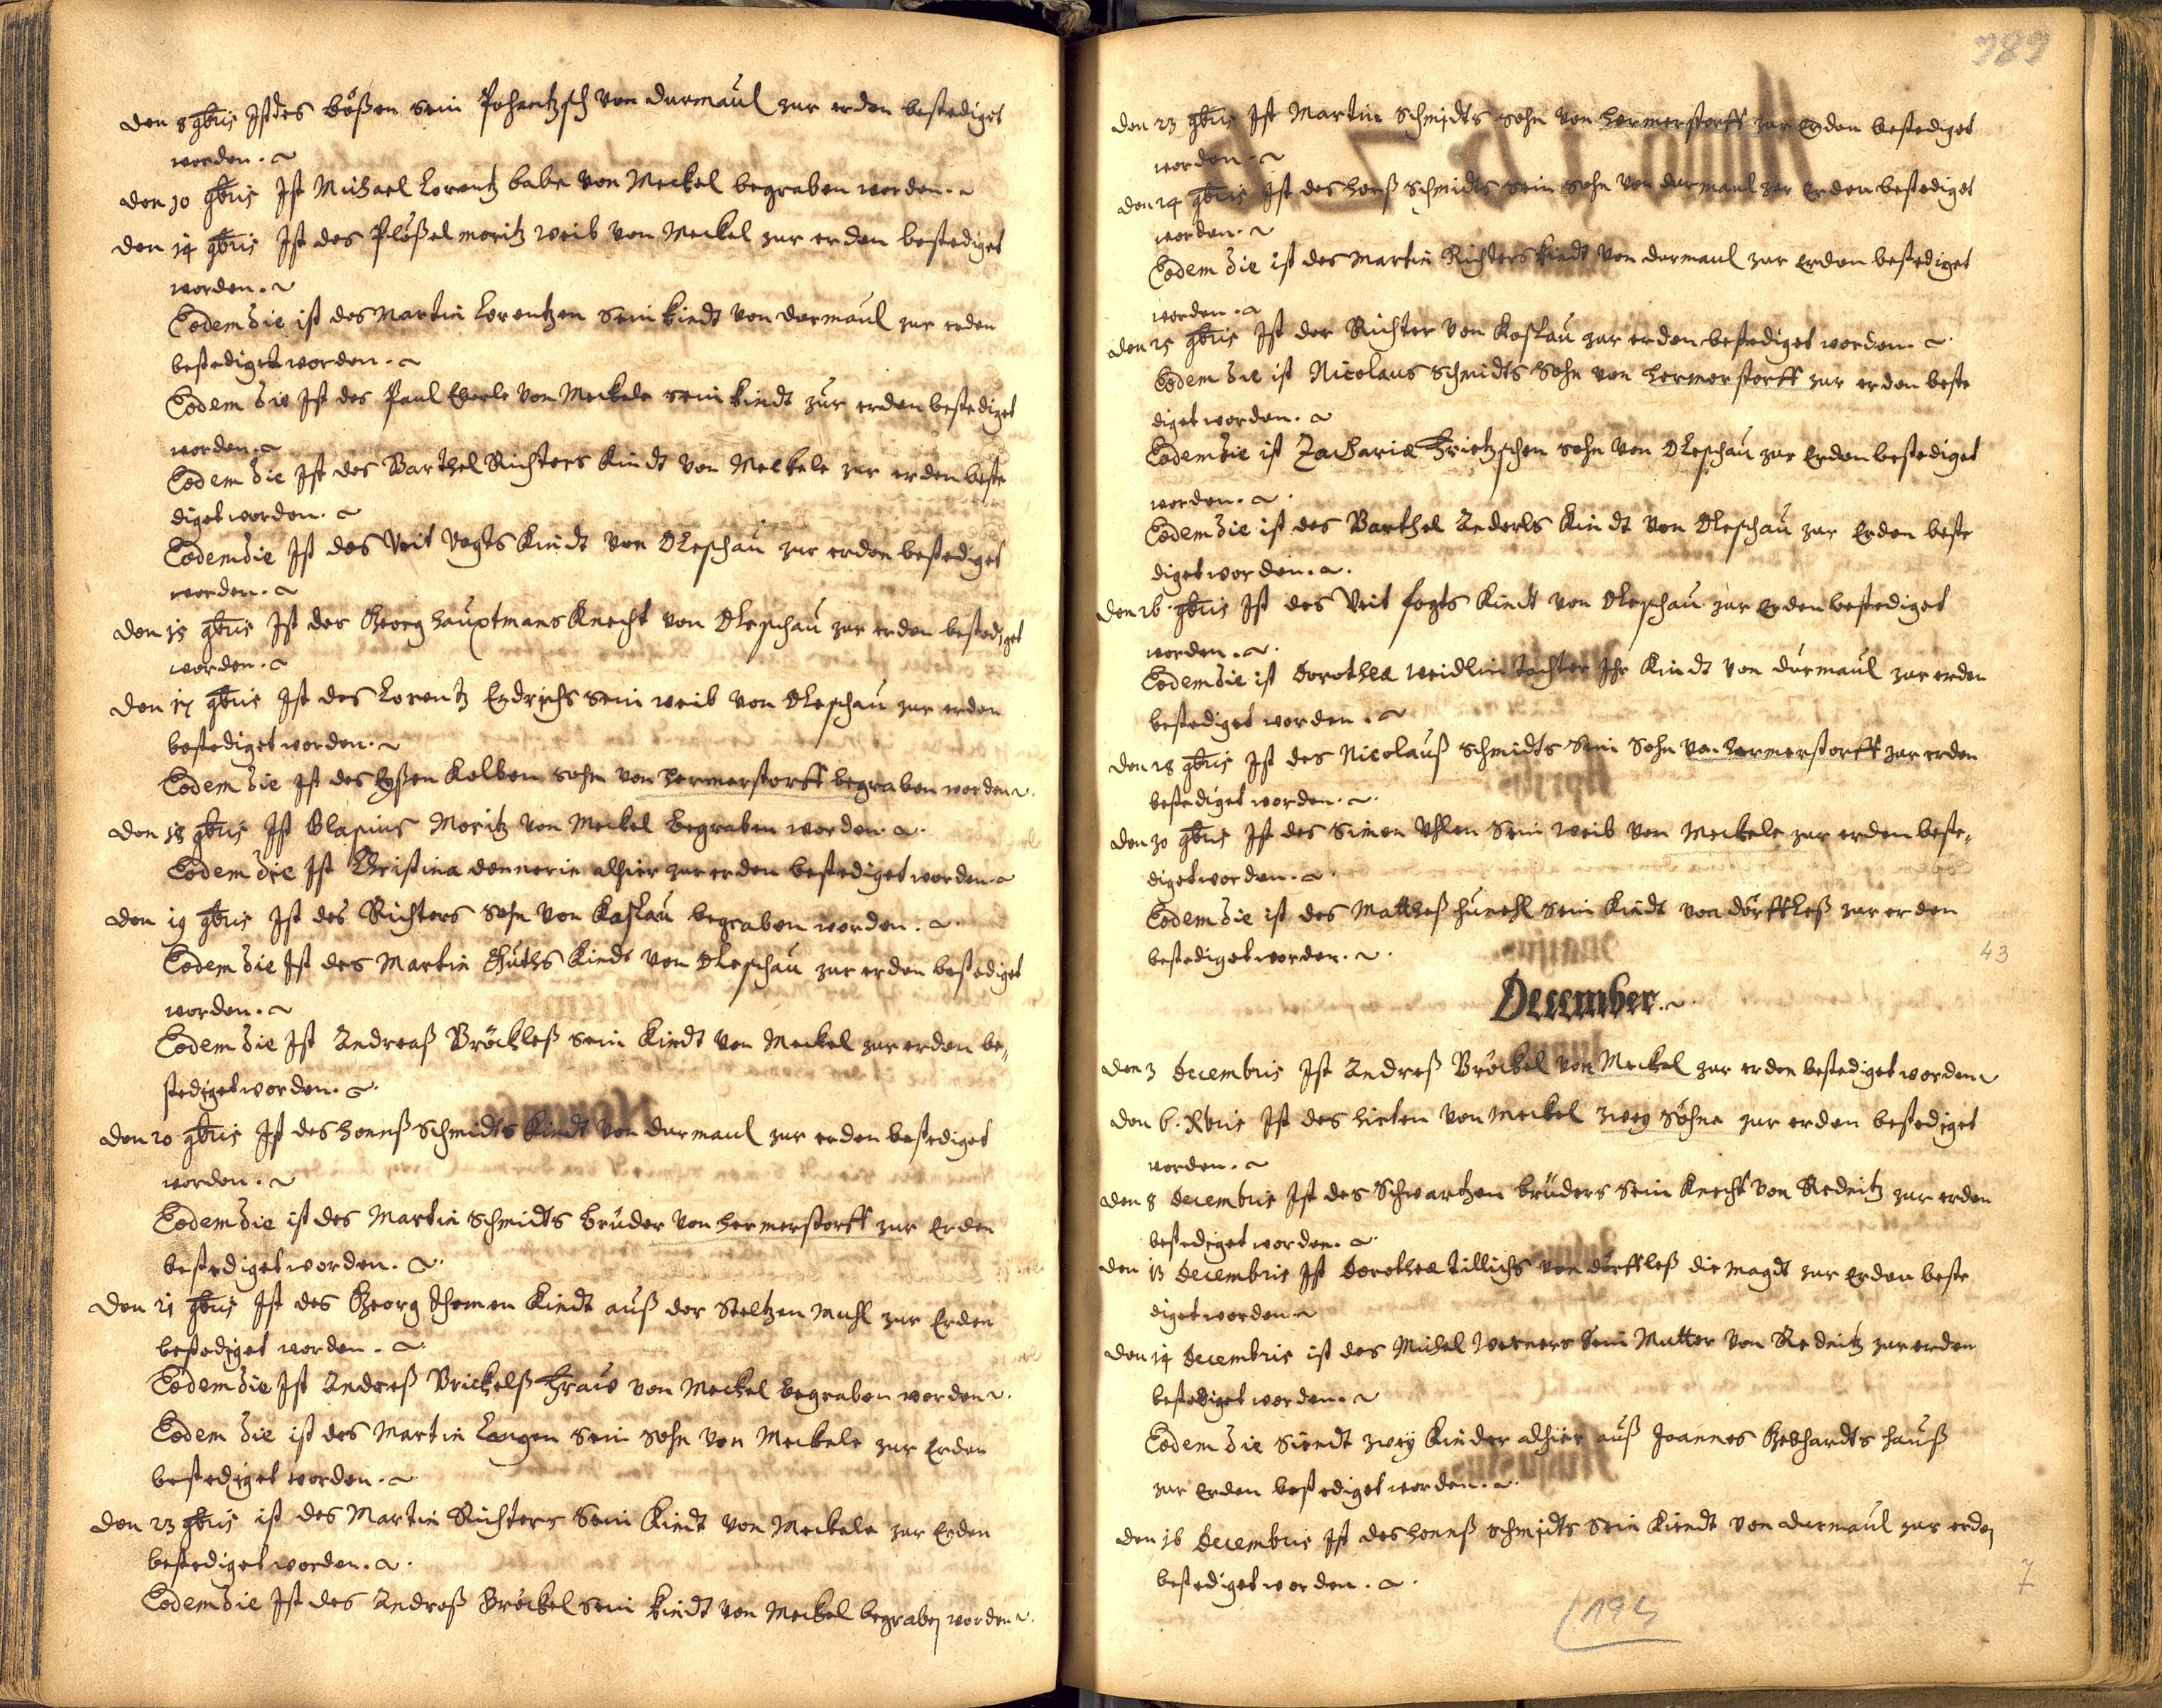 den 8 9bris Ist des bößen sein Johantzsch von durmaul zur erden bestediget
worden.
den 10 9bris Ist Michael Lorentz babe von Meckel begraben worden.
den 14 9bris Ist des Plößel moritz weib von Meckel zur erden bestediget
worden.
Eodem die ist des Martin Lorentzen sein kindt von durmaul zur erden
bestediget worden.
Eodem die Ist des Paul Eberle von Meckele sein kindt zur erden bestediget
worden.
Eodem die Ist des Barthel Richters Kindt von Meckele zur erden beste
diget worden.
Eodem die Ist des Veit Vogts Kindt von Oleschau zur erden bestediget
worden.
den 15 9bris Ist des Georg hauptmans Knecht von Oleschau zur erden bestediget
worden.
den 17 9bris Ist des Lorentz Endrichs sein weib von Oleschau zur erden
bestediget worden.
Eodem die Ist des Kolben sohn von hermerstorff begraben worden.
den 18 9bris Ist Blasius Moritz von Meckel begraben worden.
Eodem die Ist Christina dennerin alhier zur erden bestediget worden.
den 19 9bris Ist des Richters Sohn von Koslau begraben worden.
Eodem die Ist des Martin Guths Kindt von Oleschau zur erden bestediget
worden.
Eodem die Ist Andreaß Bröckleß sein Kindt von Meckel zur erden be-
stediget worden.
den 20 9bris Ist des honnß Schmidts Kindt von durmaul zur erden bestediget
worden.
Eodem die ist des Martin Schmidts bruder von hermerstorff zur Erden
bestediget worden.
den 21 9bris Ist des Georg Thomen Kindt auß der Steltzen Muhl zur Erden
bestediget worden.
Eodem die Ist Andreß Brickelß Fraw von Meckel begraben worden.
Eodem die ist des Martin Langen sein sohn von Meckele zur Erden
bestediget worden.
den 23 9bris ist des Martin Richters sein Kindt von Meckele zur Erden
bestediget worden.
Eodem die Ist des Andreß Bröckel sein kindt von Meckel begraben worden.
789
den 23 9bris Ist Martin Schmidts sohn von hermerstorff zur Erden bestediget
worden.
den 24 9bris Ist des honß Schmidts sein sohn von durmaul zur Erden bestediget
worden.
Eodem die ist des Martin Richters kindt von durmaul zur Erden bestediget
worden.
den 25 9bris Ist der Richter von Koslau zur erden bestediget worden.
Eodem die ist Nicolaus Schmidts Sohn von hermerstorff zur erden beste
diget worden.
Eodem die ist Zachariæ Frietzschen sohn von Oleschau zur Erden bestediget
worden.
Eodem die ist des Barthel Anderls Kindt von Oleschau zur Erden beste
diget worden.
den 26 9bris Ist des Veit fogts Kindt von Oleschau zur Erden bestediget
worden.
Eodem die ist Dorothea weidlin tochter Ihr Kindt von durmaul zur erden
bestediget worden.
den 28 9bris Ist des Nicolauß Schmidts sein Sohn von hermerstorff zur erden
bestediget worden.
den 30 9bris Ist des Simon Uhlen sein weib von Meckele zur erden beste-
diget worden.
Eodem die ist des Mattheß sein Kindt von dörffleß zur erden
bestediget worden.
43
December.
den 3 decembris Ist Andreß Bröckel von Meckel zur erden bestediget worden
den 6. Xbris Ist des hirten von Meckel zwey söhne zur erden bestediget
worden.
den 8 decembris Ist des Schwartzen bruders sein Knecht von Rednitz zur erden
bestediget worden.
den 13 decembris Ist Dorothea tillichs von dörffleß die magdt zur Erden beste
diget worden
den 14 decembris ist des Michel Werners sein Mutter von Rednitz zur erden
bestediget worden.
Eodem die Siendt zwey Kinder alhier auß Joannes Gebhardts hauß
zur Erden bestediget worden.
den 16 decembris Ist des honnß schmidts sein kindt von durmaul zur erden
bestediget worden.
7